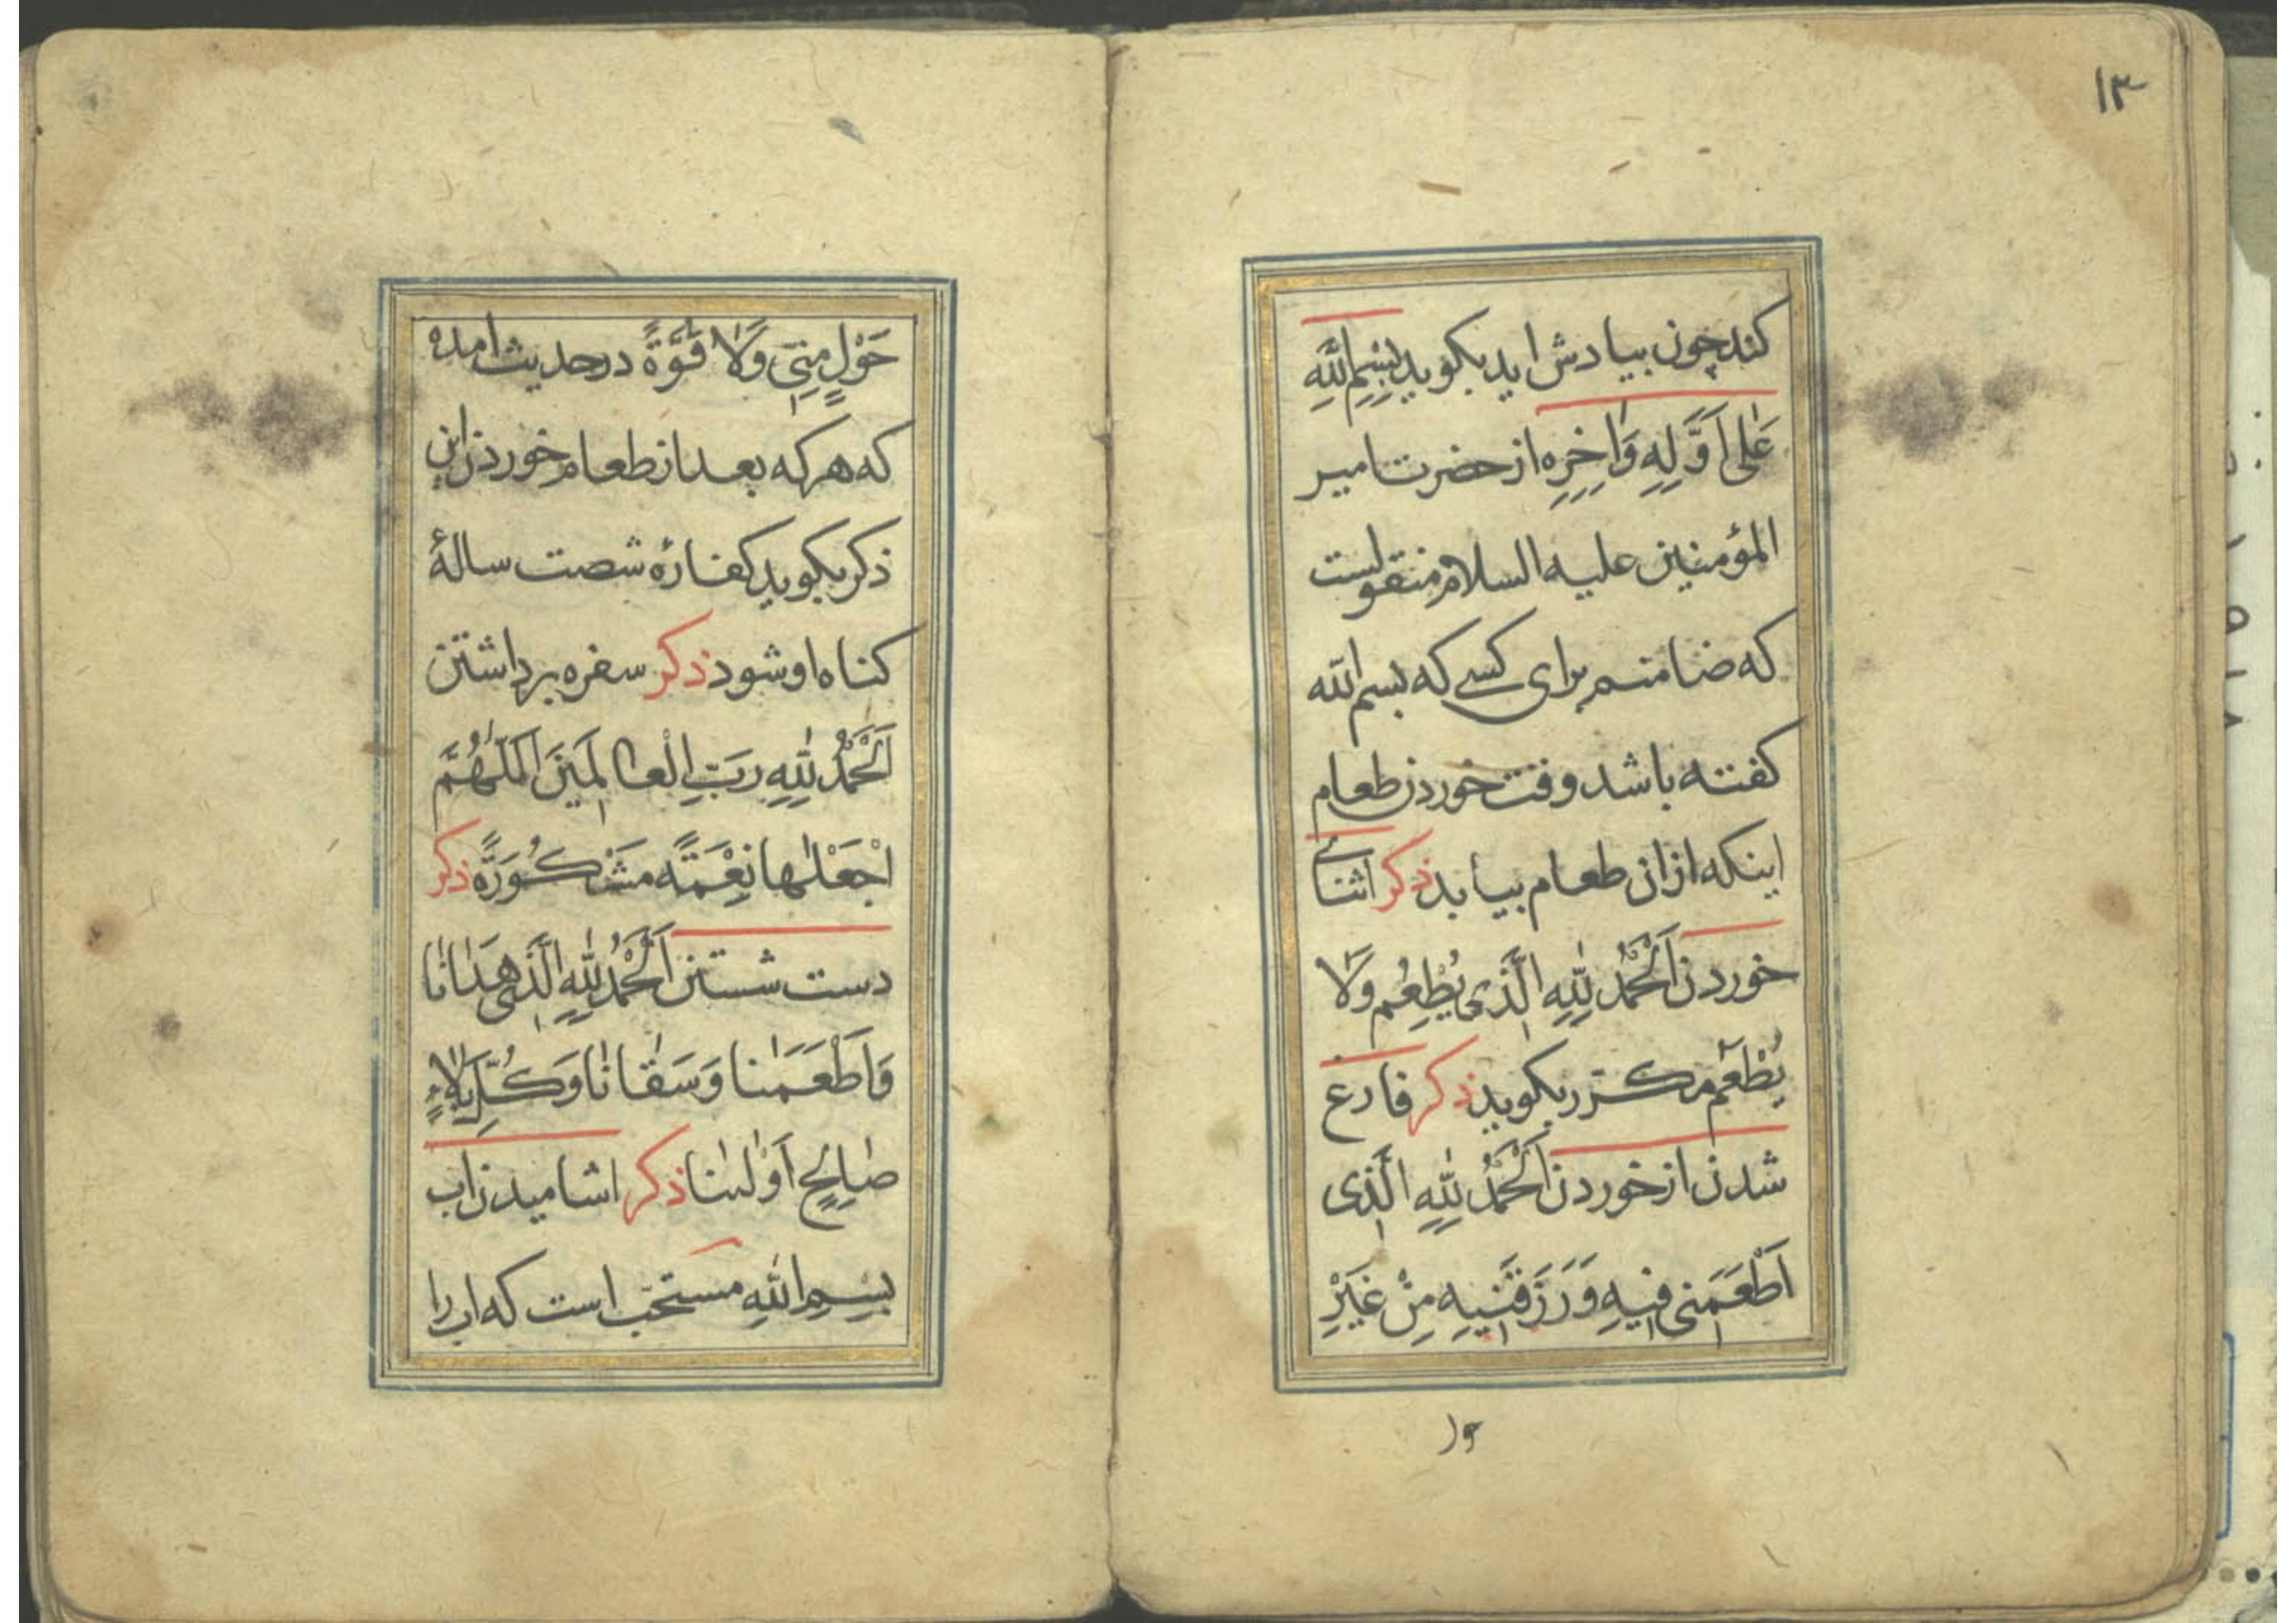 ۱۳
کند چون بیادش اید بکوید بِسْمِ اللّٰهِ
عَلٰی اَوَّلِهِ وَاٰخِرِهِ از حضرت امیر
المؤمنین علیه السلام منقولست
که ضامنم برای کسی که بسم الله
کفته باشد وقت خوردن طعام
اینکه ازان طعام بیابد ذکر اثنائے
خوردن اَلْحَمْدُ لِلّٰهِ الَّذی یُطْعِمُ وَلَا
یُطْعَم مکرّر بکوید ذکر فارغ
شدن از خوردن اَلْحَمْدُ لِلّٰهِ الَّذی
اَطْعَمَنی فیهِ وَرَزَقَنیهِ مِنْ غَیْرِ
حَوْلٍ مِنّی وَلَا قُوَّةً درحدیث امده
که هرکه بعد از طعام خوردن این
ذکر بکوید کفارۀ شصت سالۀ
کناه او شود ذکر سفره برداشتن
اَلْحَمْدُ لِلّٰهِ رَبِّ الْعالَمینَ اَللّٰهُمَّ
اجْعَلْها نِعْمَةً مَشْکُورَةً ذکر
دست شستن اَلْحَمْدُ لِلّٰهِ الَّذی هَدٰانٰا
وَاَطْعَمَنٰا وَسَقٰانٰا وَکُلِّ بَلٰاءٍ
صٰالِحٍ اَوْلٰینٰا ذکر اشامیدن اب
بِسْمِ اللّٰهِ مستحبّ است که اب را